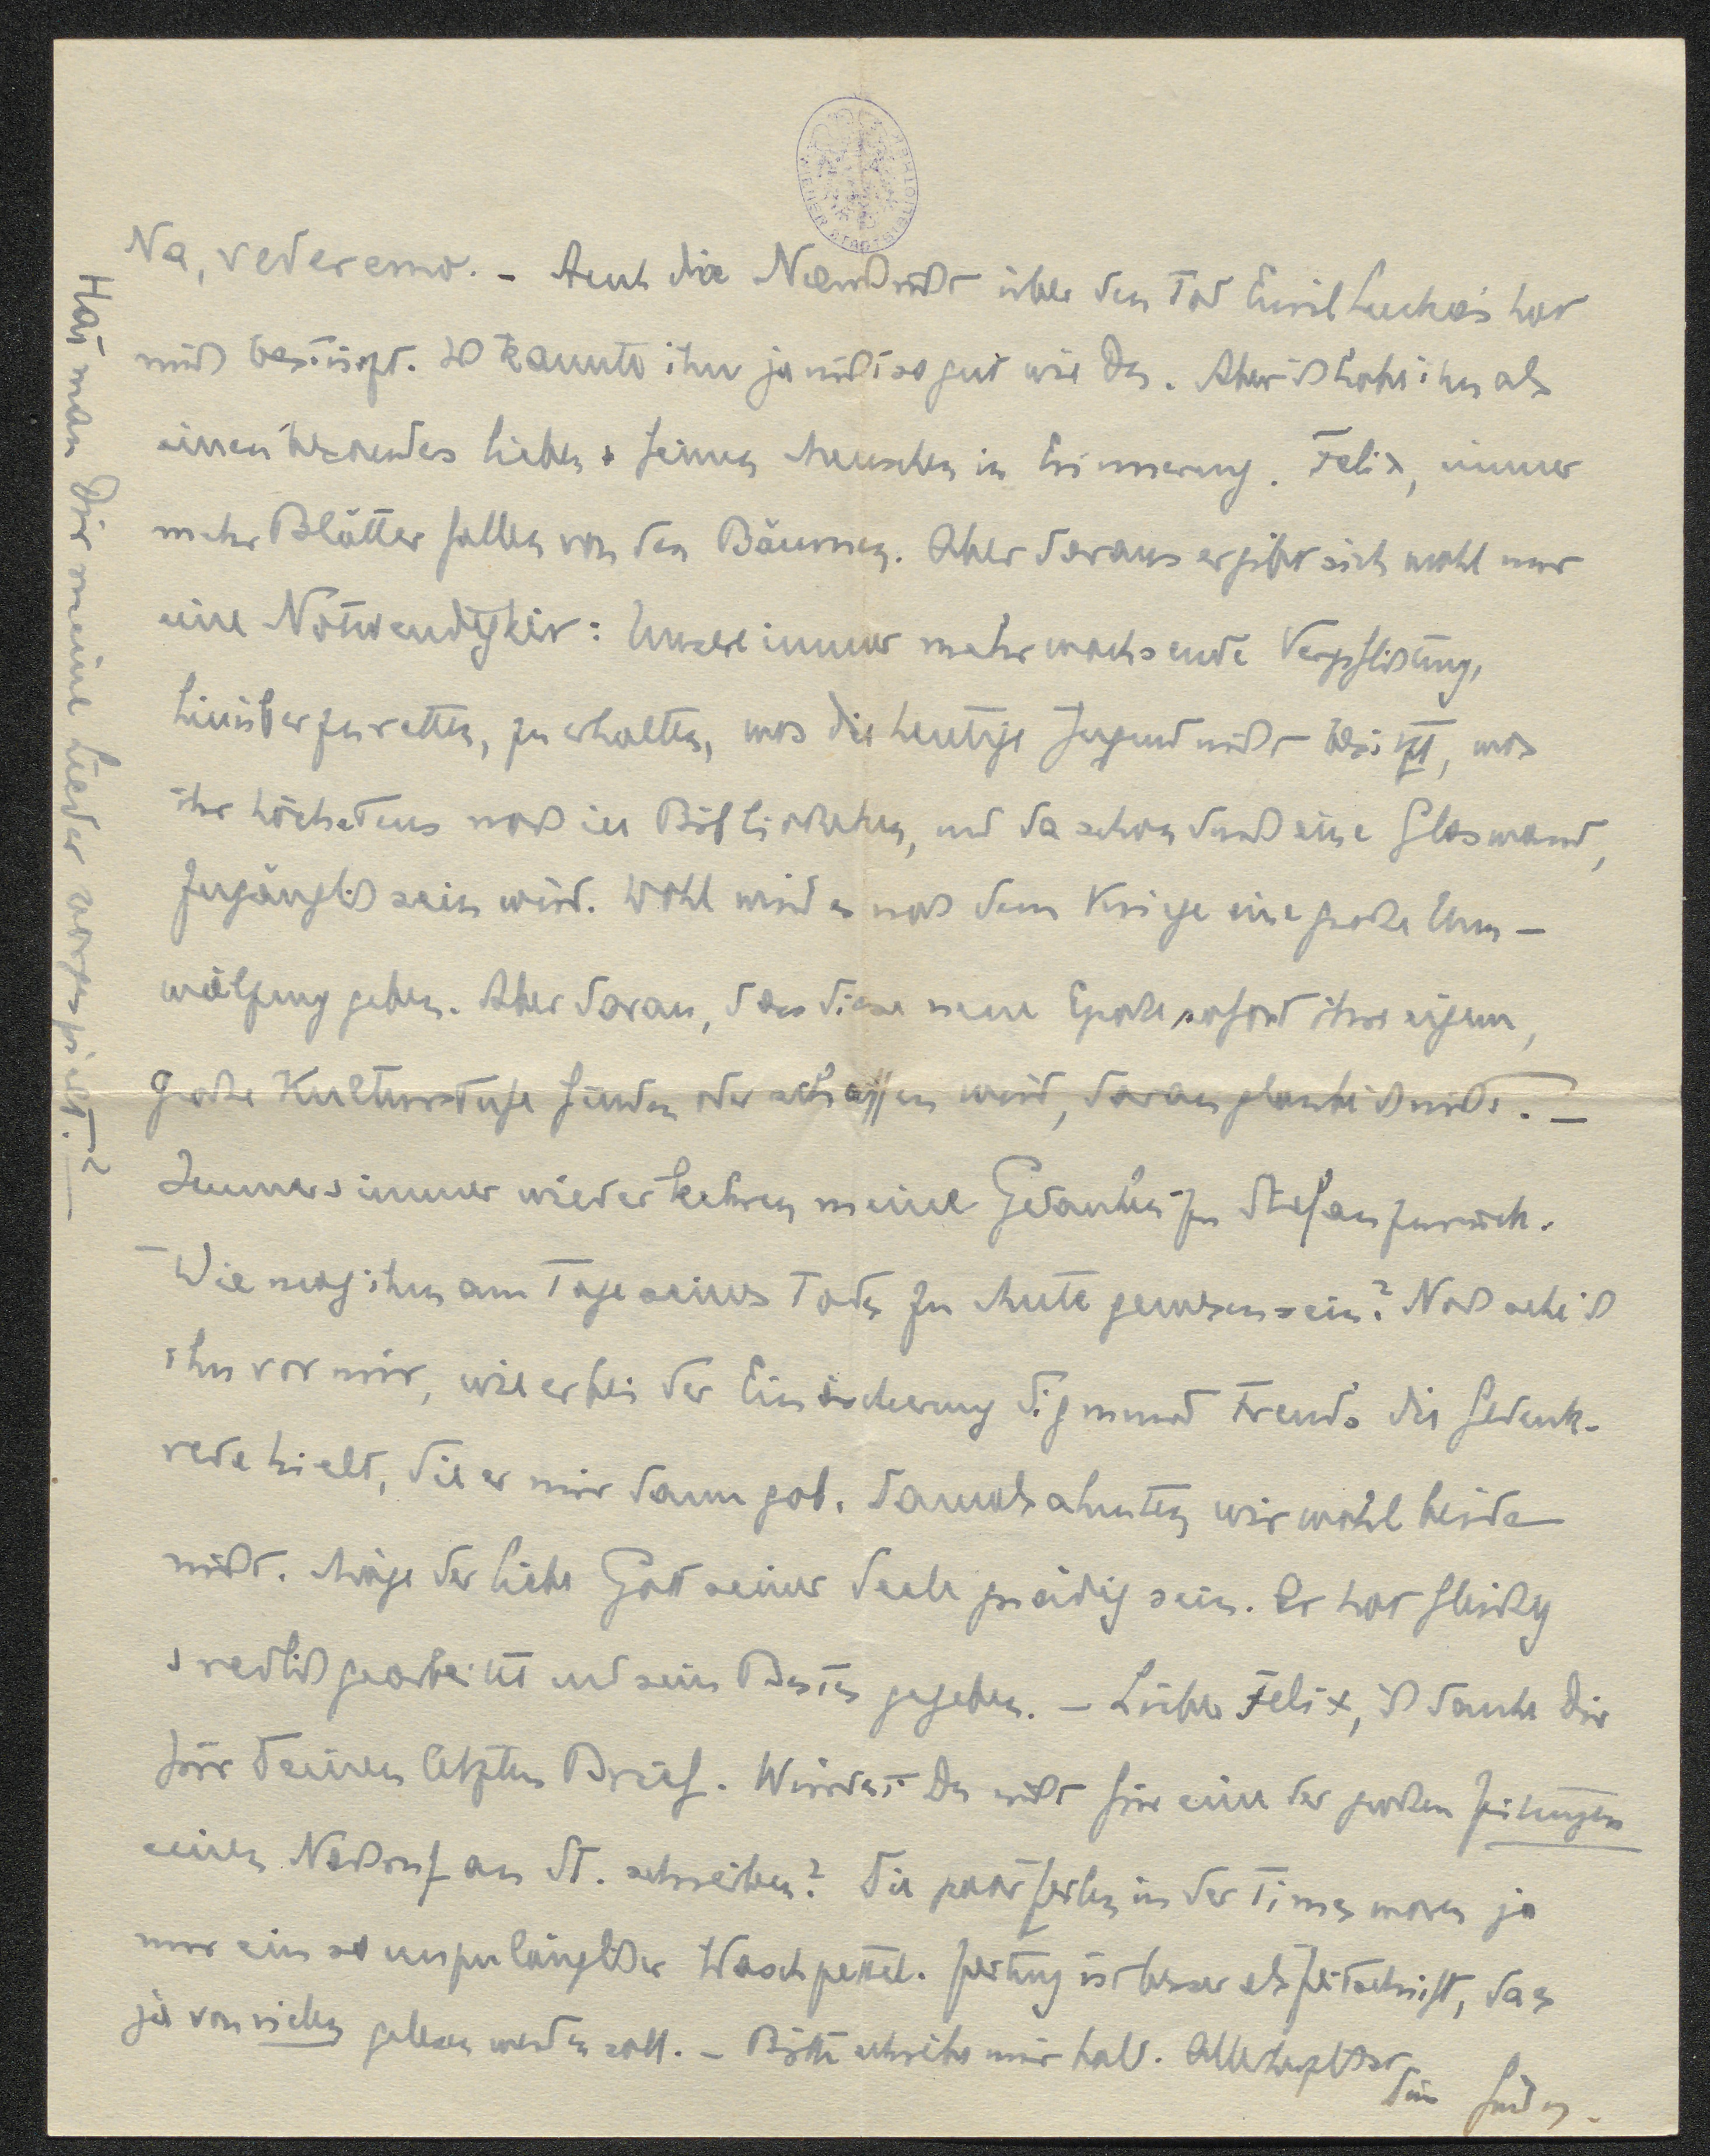 Na, vederemo. – Auch die Nachricht über den Tod Emil Lucka's hat
mich bestürzt. Ich kannte ihn ja nicht so gut wie Du. Aber ich habe ihn als
einen besonders lieben & feinen Menschen in Erinnerung. Felix, immer
mehr Blätter fallen von den Bäumen. Aber daraus ergibt sich wohl nur
eine Notwendigkeit: Unsere immer mehr wachsende Verpflichtung,
hinüberzuretten, zu erhalten, was die heutige Jugend nicht besitzt, was
ihr höchstens noch in Bibliotheken, und da schon durch eine Glaswand,
zugänglich sein wird. Wohl wird es nach dem Kriege eine große Um-
wälzung geben. Aber daran, dass diese neue Epoche sofort ihre eigene,
große Kulturstufe finden oder schaffen wird, daran glaube ich nicht. –
Immer & immer wieder kehren meine Gedanken zu Stefan zurück.
Wie mag ihm am Tage seines Todes zu Mute gewesen sein? Noch sehe ich
ihn vor mir, wie er bei der Einäscherung Sigmund Freuds die Gedenk-
rede hielt, die er mir dann gab. Damals ahnten wir wohl beide
nicht. Möge der liebe Gott seiner Seele gnädig sein. Er hat fleißig
& redlich gearbeitet und sein Bestes gegeben. – Lieber Felix, ich danke Dir
für Deinen letzten Brief. Würdest Du nicht für eine der großen Zeitungen
einen Nachruf an St. schreiben? Die paar Zeilen in der Times waren ja
nur ein so unzulänglicher Waschzettel. Zeitung ist besser als Zeitschrift, da es
ja von vielen gelesen werden soll. – Bitte schreibe mir bald. Allerherzlichst
Dein
Hat man Dir meine Lieder vorgespielt?
WIENER STADTBIBLIOTHEK